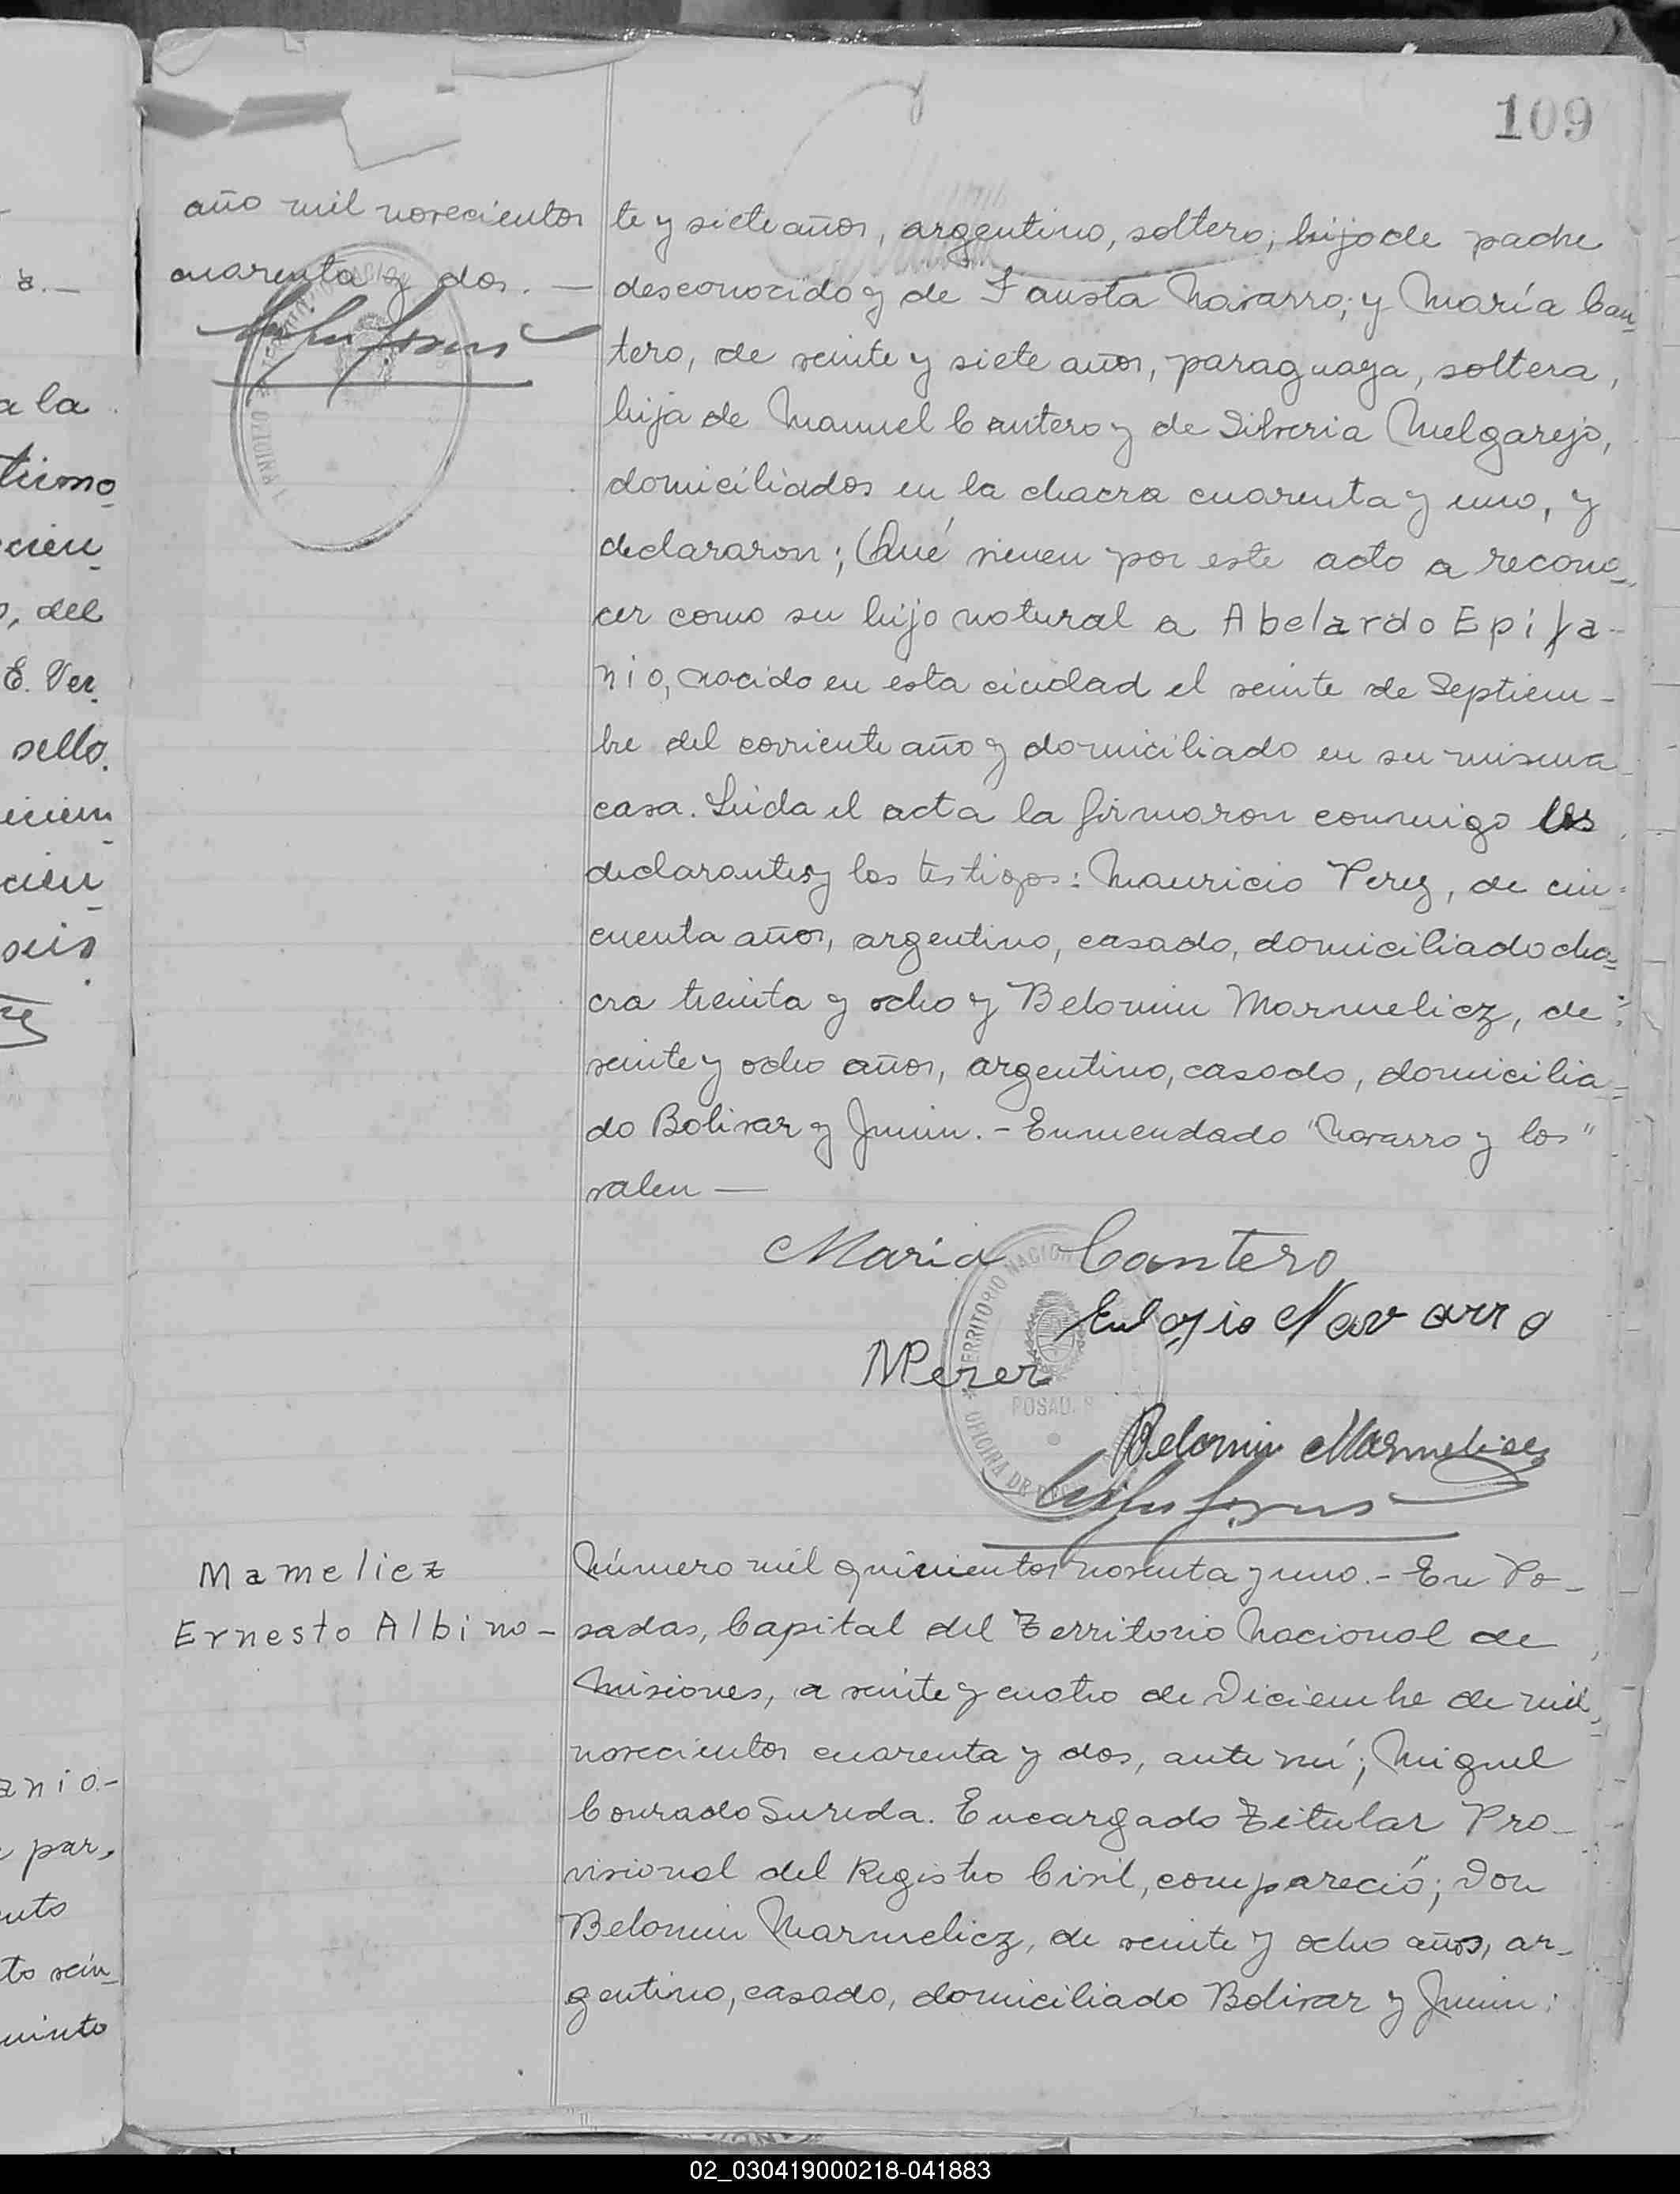 109
año mil novecientos
cuarenta y dos. —
te y siete años, argentino, soltero, hijo de padre
desconocido y de Fausta Navarro; y María Can_
tero, de veinte y siete años, paraguaya, soltera,
hija de Manuel Cantero y de Silveria Melgarejo,
domiciliados en la chacra cuarenta y uno, y
declararon; Qué vienen por este acto a recono_
cer como su hijo natural a Abelardo Epifa-
nio, nacido en esta ciudad el veinte de Septiem-
bre del corriente año y domiciliado en su misma
casa. Leida el acta la firmaron conmigo los
declarantes y los testigos: Mauricio Perez, de cin-
cuenta años, argentino, casado, domiciliado cha=
cra treinta y ocho y Belarmin Marmelicz, de
veinte y ocho años, argentino, casado, domicilia=
do Bolivar y Junin. - Enmendado "Navarro y los"
valen —
Maria Cantero
Eulogio Navarro
MPerez
TERRITORIO NACION
POSAD. S
OFICINA DE
Mameliez
Ernesto Albino-
Número mil quinientos noventa y uno. - En Po_
sadas, Capital del Territorio Nacional de
Misiones, a veinte y cuatro de Diciembre de mil
novecientos cuarenta y dos, ante mí; Miguel
Conrado Sureda. Encargado Titular Pro_
visional del Registro Civil, compareció; Don
Belarmin Marmelicz, de veinte y ocho años, ar_
gentino, casado, domiciliado Bolivar y Junin;
a.—
a la
cien
o, del
E. Ver
sello.
seis
anio-
par,
uinto
02_030419000218-041883